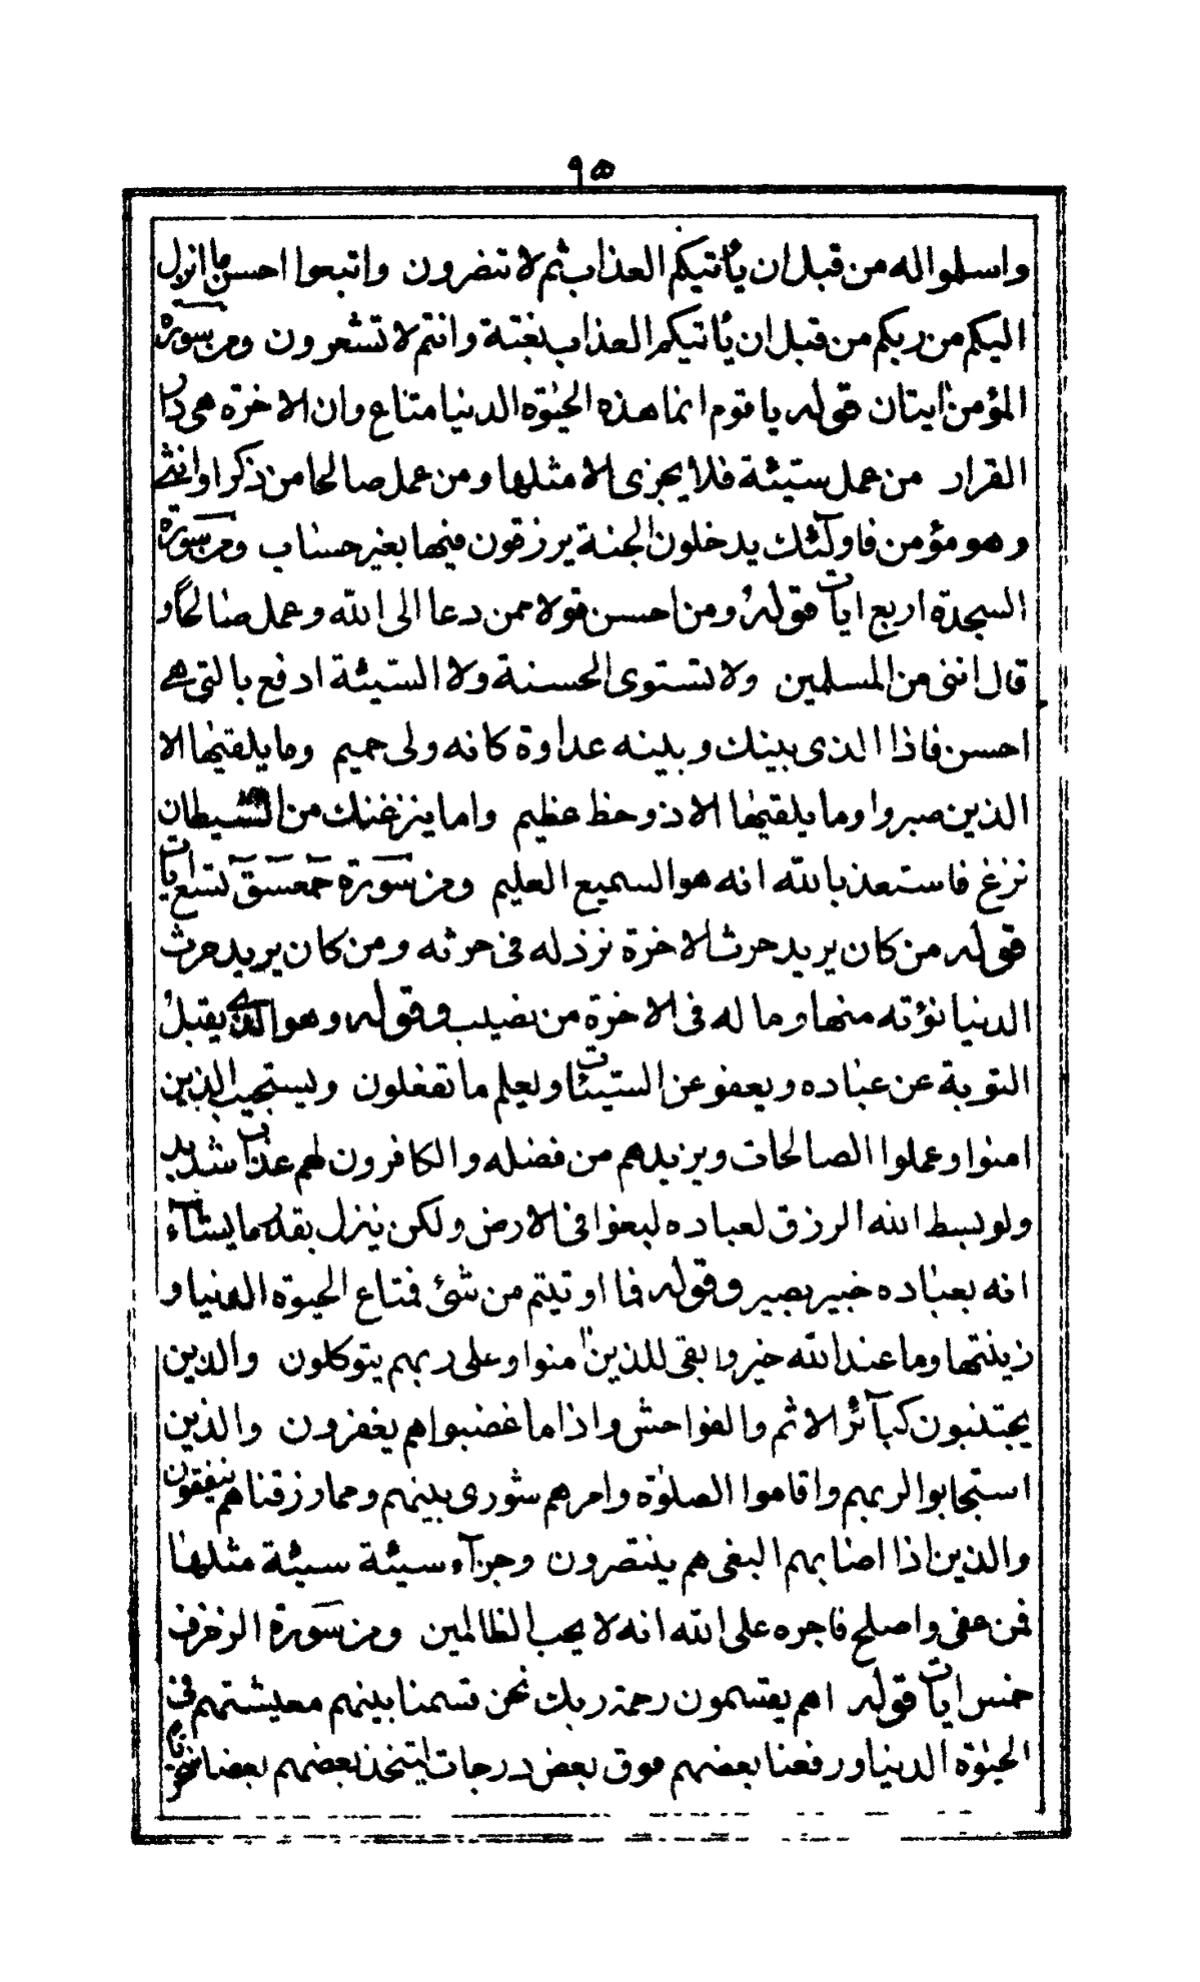 ٩٥
واسلموا له من قبل ان يأتيكم العذاب ثم لا تنصرون واتبعوا احسن ما انزل
اليكم من ربكم من قبل ان يأتيكم العذاب بغتة وانتم لا تشعرون ومن سورة
المؤمن ايتان قوله يا قوم انما هذه الحيوة الدنيا متاع وان الاخرة هى دار
القرار من عمل سيئة فلا يجزى الا مثلها ومن عمل صالحا من ذكر او انثى
وهو مؤمن فاولئك يدخلون الجنة يرزقون فيها بغير حساب ومن سورة
السجدة اربع ايات قوله ومن احسن قولا ممن دعا الى الله وعمل صالحاً و
قال اننى من المسلمين ولا تستوى الحسنة ولا السيئة ادفع بالتى هى
احسن فاذا الذى بينك وبينه عداوة كانه ولى حميم وما يلقيها الا
الذين صبروا وما يلقيها الا ذو حظ عظيم واما ينزغنك من الشيطان
نزغ فاستعذ بالله انه هو السميع العليم ومن سورة حمعسق تسع ايات
قوله من كان يريد حرث الاخرة نزد له فى حرثه ومن كان يريد حرث
الدنيا نؤته منها وما له فى الاخرة من نصيب وقوله وهو الذى يقبل
التوبة عن عباده ويعفو عن السيئات ويعلم ما تفعلون ويستجيب الذين
امنوا وعملوا الصالحات ويزيدهم من فضله والكافرون لهم عذاب شديد
ولو بسط الله الرزق لعباده لبغوا فى الارض ولكن ينزل بقدر ما يشآء
انه بعباده خبير بصير وقوله فما اوتيتم من شئ فمتاع الحيوة الدنيا و
زينتها وما عند الله خير وابقى للذين امنوا وعلى ربهم يتوكلون والذين
يجتنبون كبآئر الاثم والفواحش واذا ما غضبوا هم يغفرون والذين
استجابوا لربهم واقاموا الصلوة وامرهم شورى بينهم ومما رزقناهم ينفقون
والذين اذا اصابهم البغى هم ينتصرون وجزآء سيئة سيئة مثلها
فمن عفى واصلح فاجره على الله انه لا يحب الظالمين ومن سورة الزخرف
خمس ايات قوله اهم يقسمون رحمة ربك نحن قسمنا بينهم معيشتهم فى
الحيوة الدنيا ورفعنا بعضهم فوق بعض درجات ليتخذ بعضهم بعضا سخريا